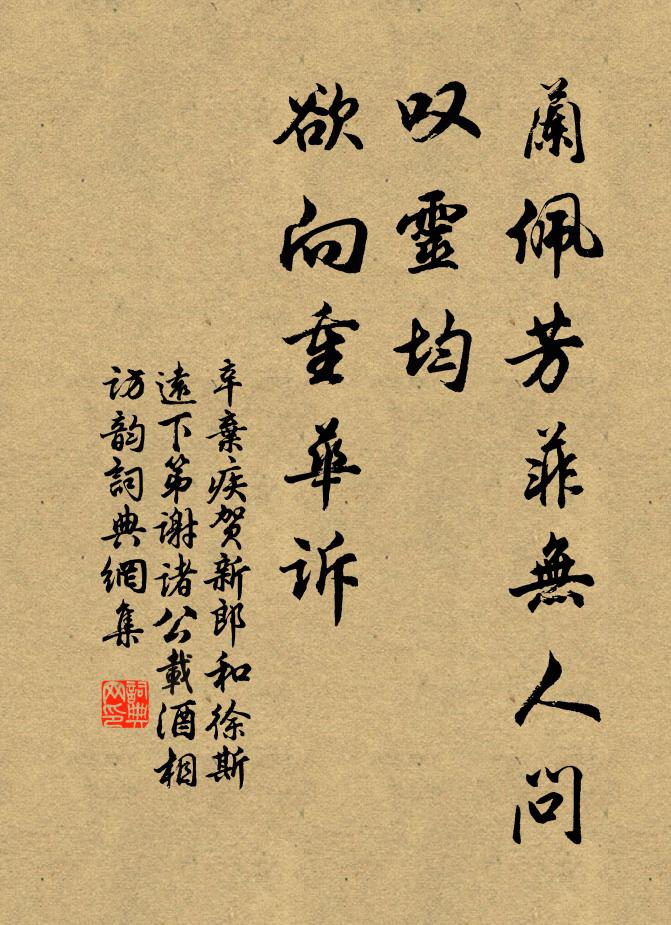 蘭佩芳菲無人問
叹靈均
欲向重華訴
辛棄疾贺新郎和徐斯
遠下第謝诸公載酒相
訪韵詞典網集
詞典网印